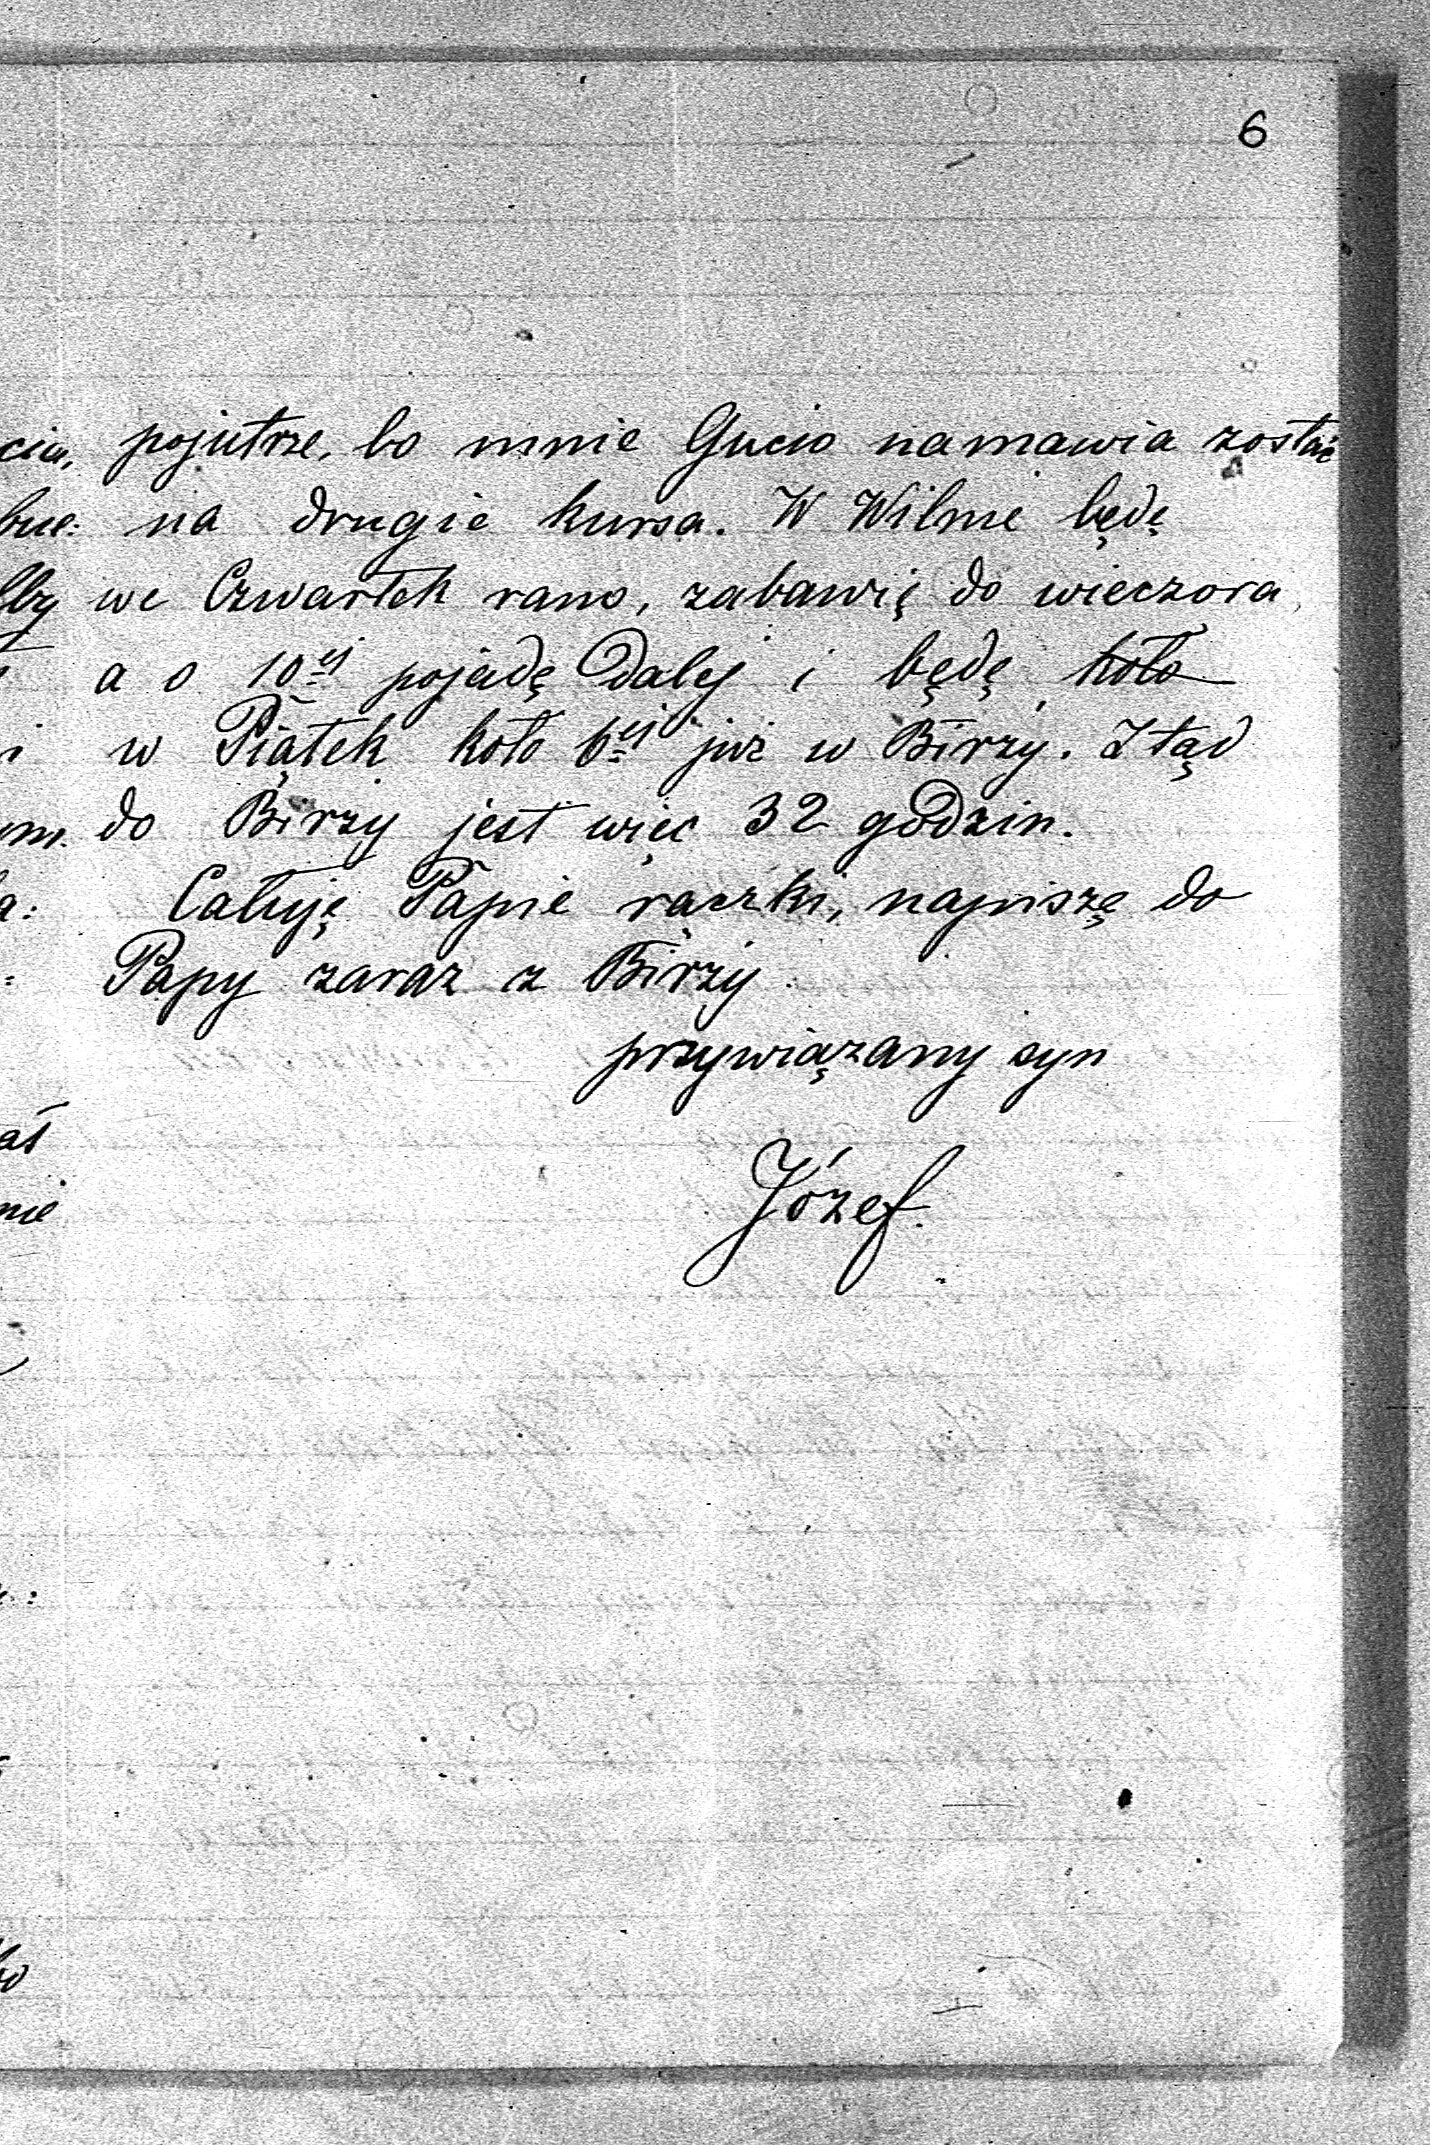 6
pojutrze, bo mnie Gucio namawia zostać
na drugie kursa. W Wilnie będę
we Czwartek rano, zabawię do wieczora,
a o 10ej pojadę dalej i będę koło
w Piątek koło 6ej już w Birży. Ztąd
do Birży jest więc 32 godzin.
Całuję Papie rączki, napiszę do
Papy zaraz z Birży
przywiązany syn
Józef.